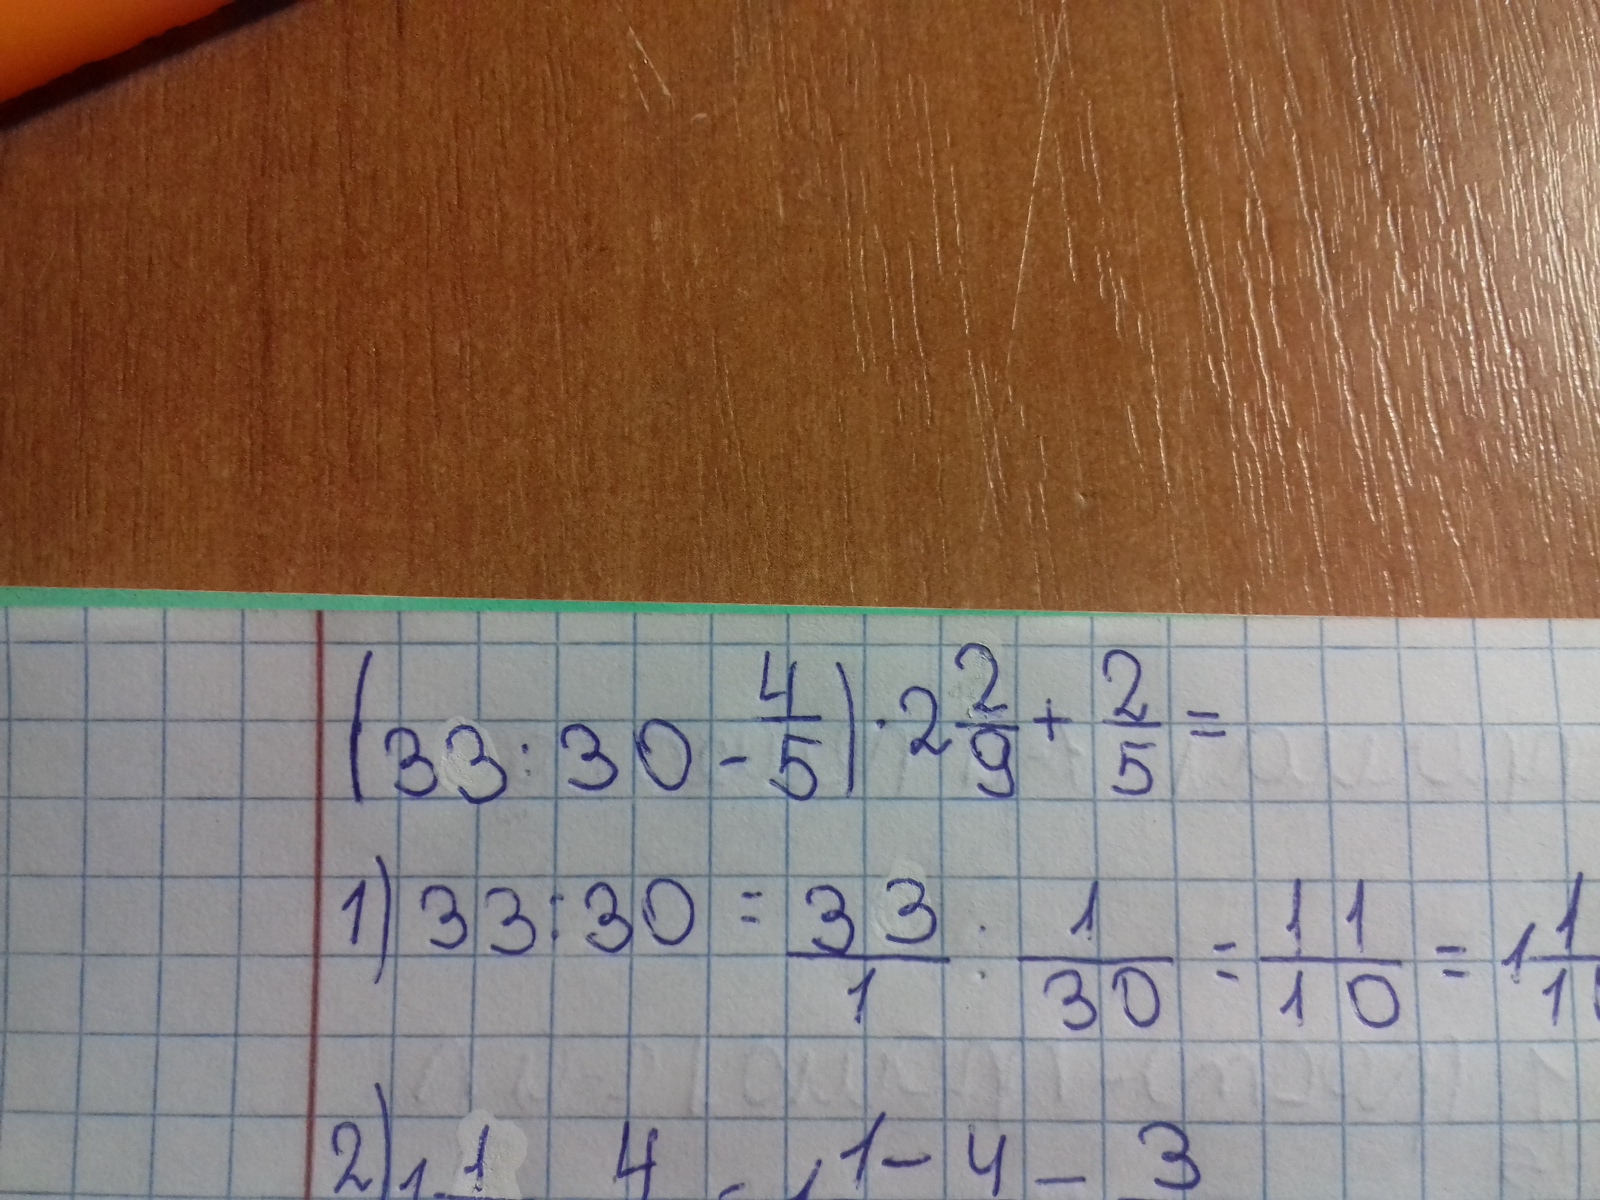 (33:30-4/5)·2 2/9+2/5=
1) 33:30=33/1:1/30=11/10=1 1/10
2) 1 1 4 = 1 1-4 = 3